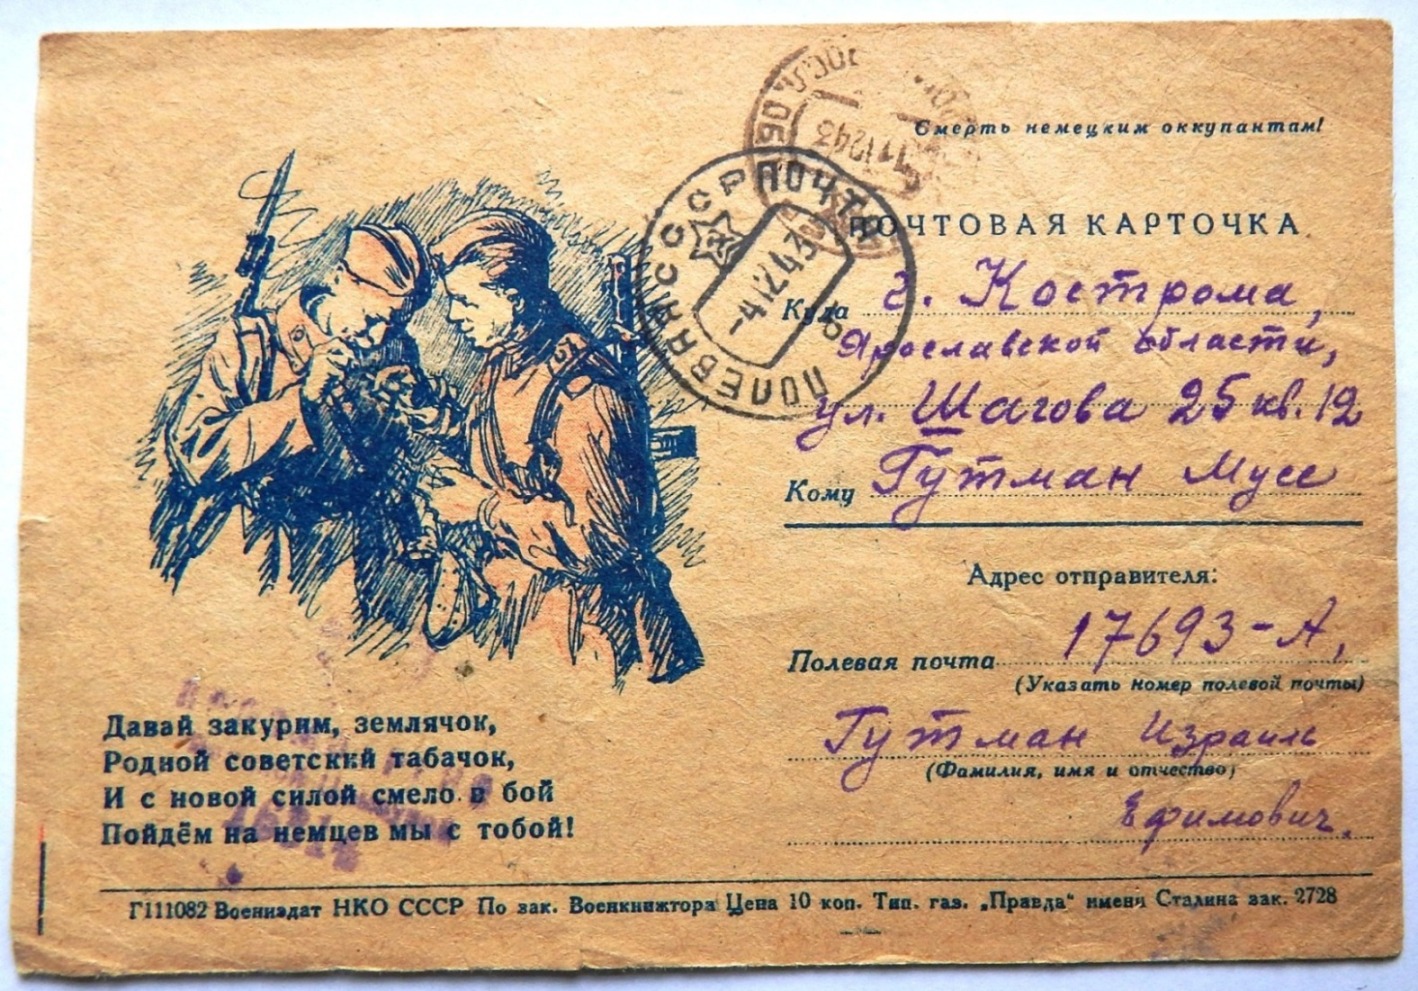 Смерть немецким оккупантам!
ПОЧТОВАЯ КАРТОЧКА
СССР ПОЧТА
ПОЛЕВАЯ
-4 12 43
11 12 43
Куда г. Кострома,
Ярославской области,
ул. Шагова 25 кв. 12
Кому Гутман Мусе
Адрес отправителя:
Полевая почта 17693-А,
(Указать номер полевой почты)
Гутман Израиль
(Фамилия, имя и отчество)
Ефимович.
Давай закурим, землячок,
Родной советский табачок,
И с новой силой смело в бой
Пойдём на немцев мы с тобой!
Г111082 Воениздат НКО СССР По зак. Военкнижторга Цена 10 коп. Тип. газ. „Правда“ имени Сталина зак. 2728